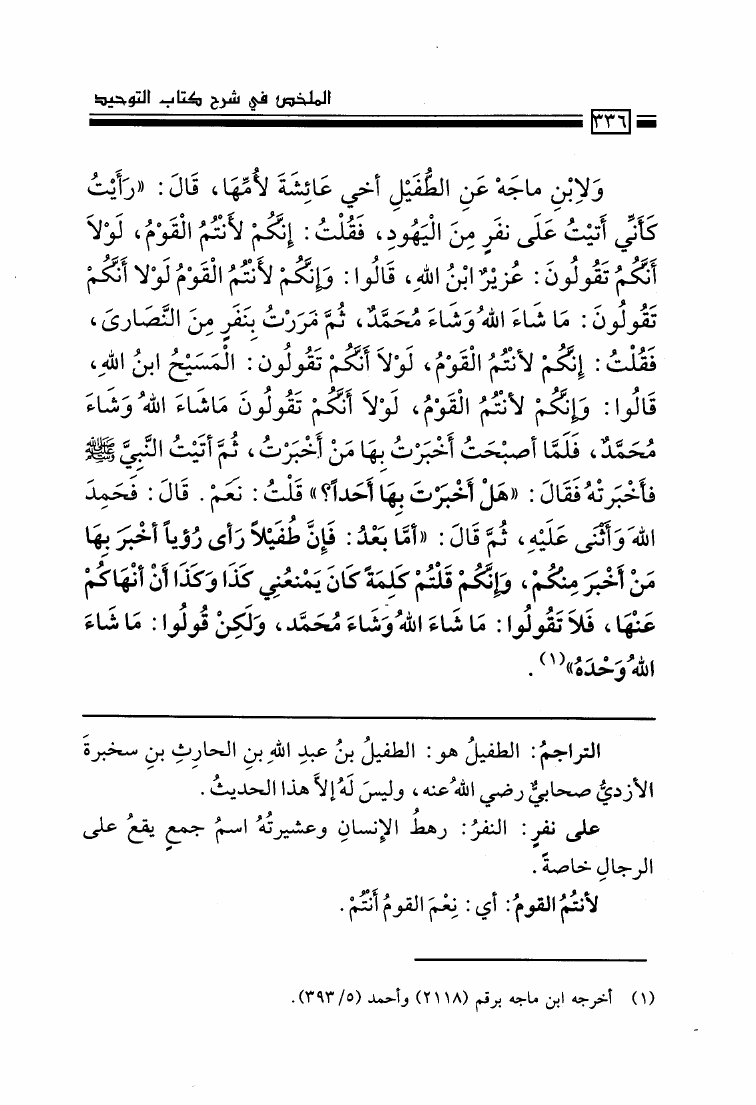 الملخص في شرح كتاب التوحيد
٣٣٦
وَلِابْنِ ماجَهْ عَنِ الطُّفَيْلِ أخي عَائِشَةَ لأُمِّهَا، قَالَ: «رَأَيْتُ
كَأَنِّي أَتَيْتُ عَلَى نَفَرٍ مِنَ الْيَهُودِ، فَقُلْتُ: إِنَّكُمْ لأَنْتُمُ الْقَوْمُ، لَوْلاَ
أَنَّكُمْ تَقُولُونَ: عُزَيْرٌ ابْنُ اللهِ، قَالُوا: وَإِنَّكُمْ لأَنْتُمُ الْقَوْمُ لَوْلا أَنَّكُمْ
تَقُولُونَ: مَا شَاءَ اللهُ وَشَاءَ مُحَمَّدٌ، ثُمَّ مَرَرْتُ بِنَفَرٍ مِنَ النَّصَارىَ،
فَقُلْتُ: إِنَّكُمْ لأَنْتُمُ الْقَوْمُ، لَوْلاَ أَنَّكُمْ تَقُولُون: الْمَسَيْحُ ابنُ اللهِ،
قَالُوا: وَإِنَّكُمْ لأَنْتُمُ الْقَوْمُ، لَوْلاَ أَنَّكُمْ تَقُولُونَ مَاشَاءَ اللهُ وَشَاءَ
مُحَمَّدٌ، فَلَمَّا أَصبْحَتُ أَخْبَرْتُ بِهَا مَنْ أَخْبَرْتُ، ثُمَّ أَتَيْتُ النَّبِيَّ ﷺ
فأَخْبَرتْهُ فَقَالَ: «هَلْ أَخْبَرْتَ بِهَا أَحَداً؟» قَلْتُ: نَعَمْ. قَالَ: فَحَمِدَ
اللهَ وَأَثْنَى عَلَيْهِ، ثُمَّ قَالَ: «أَمَّا بَعْدُ: فَإِنَّ طُفَيْلاً رَأى رُؤياً أَخْبَرَ بِهَا
مَنْ أَخْبَرَ مِنكُمْ، وَإِنَّكُمْ قَلْتُمْ كَلِمَةً كَانَ يَمْنَعُنِي كَذَا وَكَذَا أَنْ أَنْهَاكُمْ
عَنْهَا، فَلاَ تَقُولُوا: مَا شَاءَ اللهُ وَشَاءَ مُحَمَّد، وَلَكِنْ قُولُوا: مَا شَاءَ
اللهُ وَحْدَهُ»(١).
التراجمُ: الطفيلُ هو: الطفيلُ بنُ عبدِ اللهِ بنِ الحارثِ بنِ سخبرةَ
الأزديُّ صحابيٌّ رضي اللهُ عنه، وليسَ لَهُ إلاَّ هذا الحديثُ.
على نفرٍ: النفرُ: رهطُ الإنسانِ وعشيرتُهُ اسمُ جمعٍ يقعُ على
الرجالِ خاصةً.
لأنتُمُ القومُ: أي: نِعْمَ القومُ أَنْتُمْ.
(١) أخرجه ابن ماجه برقم (٢١١٨) وأحمد (٥/ ٣٩٣).